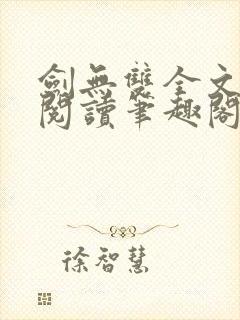 劍無雙全文
閱讀筆趣閣
徐智慧